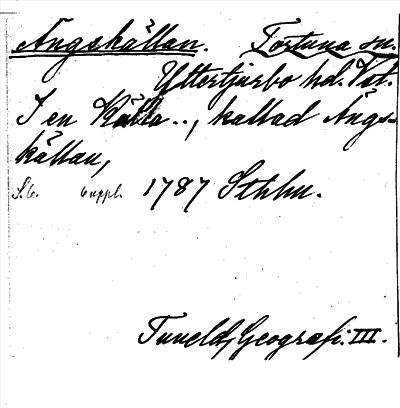 Ängskällan. Fortuna sn.
Yttertjurbo hd. Vstm.
I en Källa.., kallad Ängs-
källan,
S. 6. 6 uppl. 1787 Sthlm.
Tuneld, Geografi. III.